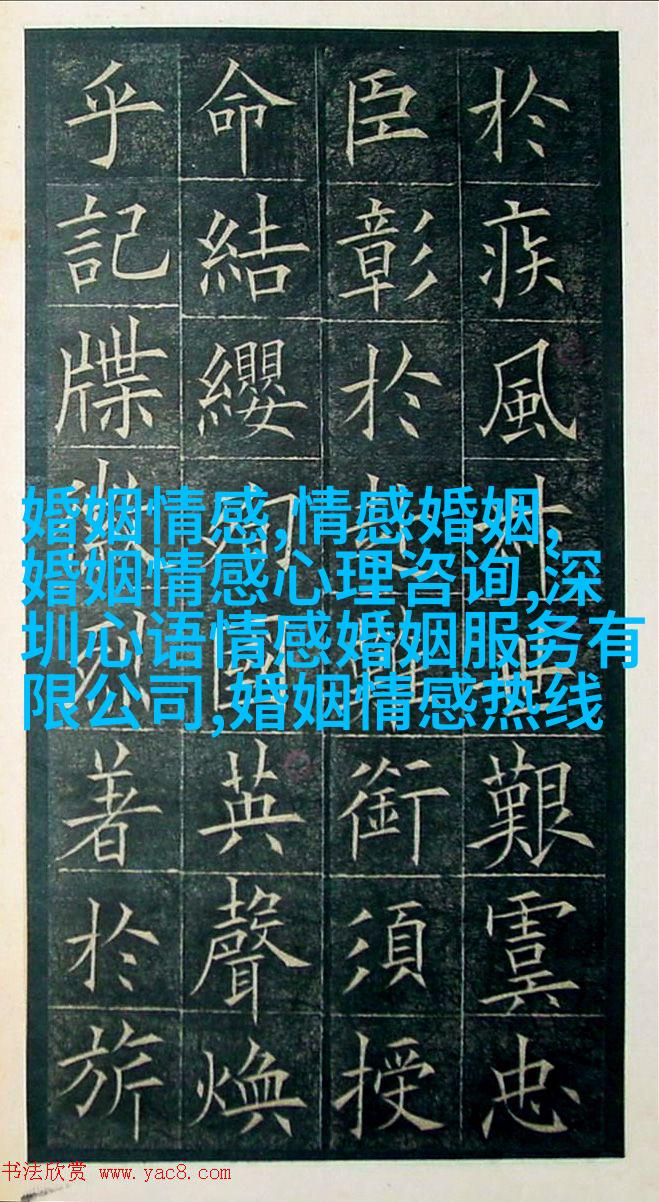 於疾風世艱虞忠
臣彰於赴難銜須授
命結纓殉國英聲煥
乎記牒徽烈著於旂
婚姻情感,情感婚姻,
婚姻情感心理咨询,深
圳心语情感婚姻服务有
限公司,婚姻情感热线
书法欣赏 www.yac8.com